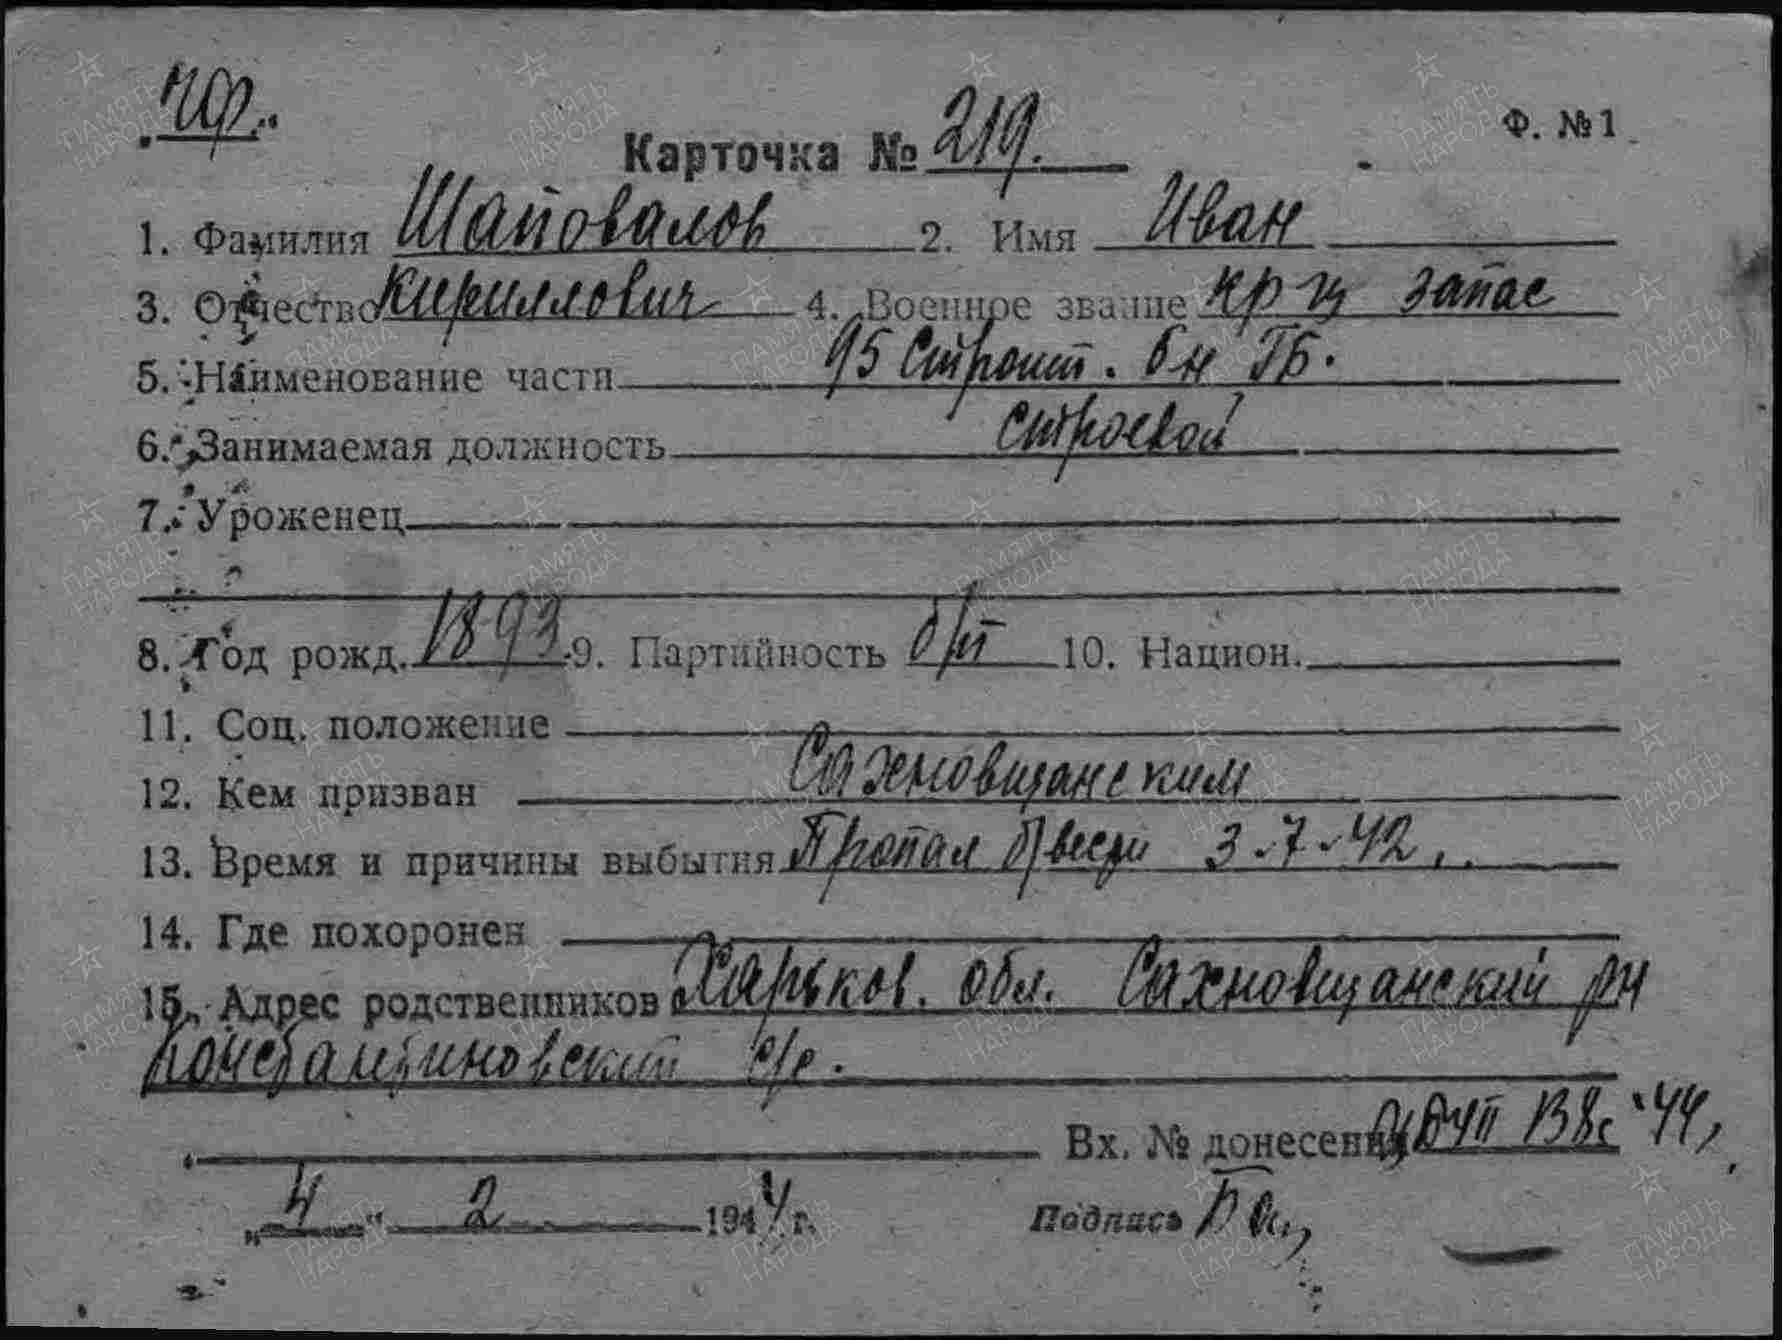 Ф. №1
Карточка № 219.
1. Фамилия Шаповалов 2. Имя Иван
3. Отчество Кириллович 4. Военное звание кр-ц запас
5. Наименование части 95 строит. б-н ГБ.
6. Занимаемая должность строевой
7. Уроженец
8. Год рожд. 1893 9. Партийность б/п 10. Национ.
11. Соц. положение
12. Кем призван Сахновщанским
13. Время и причины выбытия Пропал 3-7-42
14. Где похоронен
15. Адрес родственников Харьков. обл. Сахновщанский р-н
с/с.
Вх. № донесения 44
"4" 2 1944 г. Подпись
ПАМЯТЬ НАРОДА